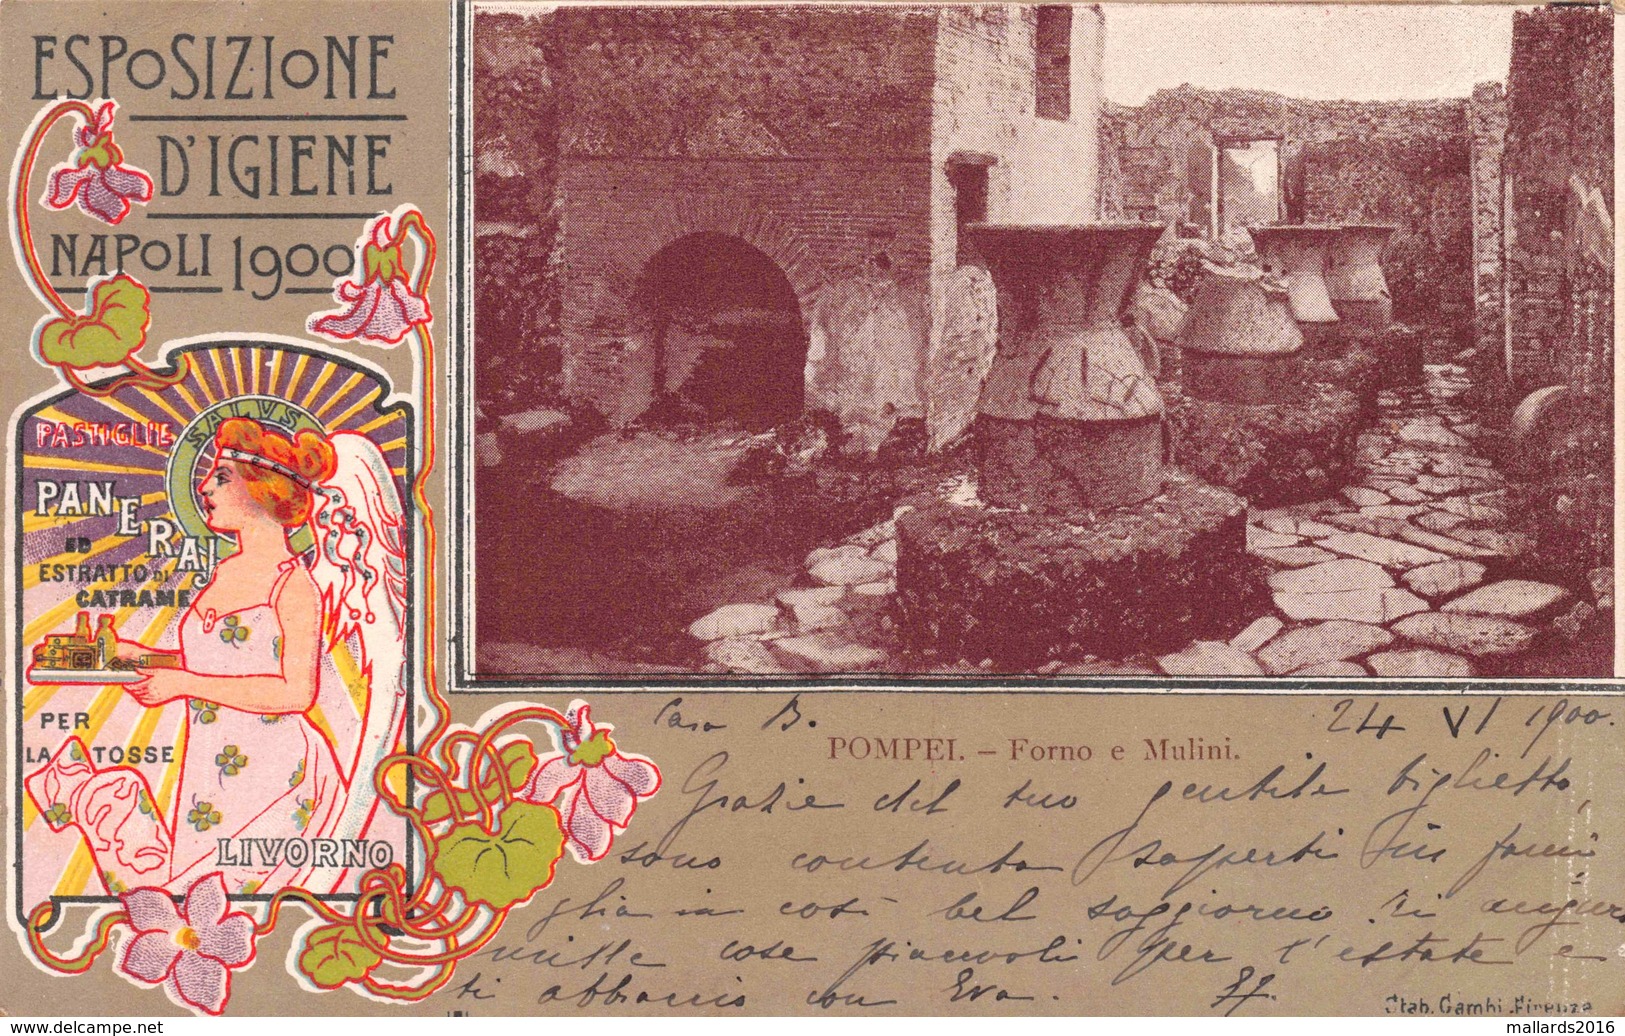 ESPOSIZIONE
D'IGIENE
NAPOLI 1900
SALVS
PASTIGLIE
PANERAJ
ED
ESTRATTO DI
CATRAME
PER
LA TOSSE
LIVORNO
Casa B. 24 VI 1900.
POMPEI. – Forno e Mulini.
Grazie del tuo gentile biglietto,
sono contenta saperti in fami
glia in così bel soggiorno. Ti auguro
mille cose piacevoli per l'estate e
ti abbraccio con Eva.
Stab. Gambi. Firenze
mallards2016